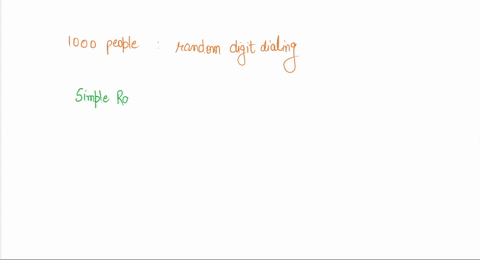 1000 people : random digit dialing
Simple Ra